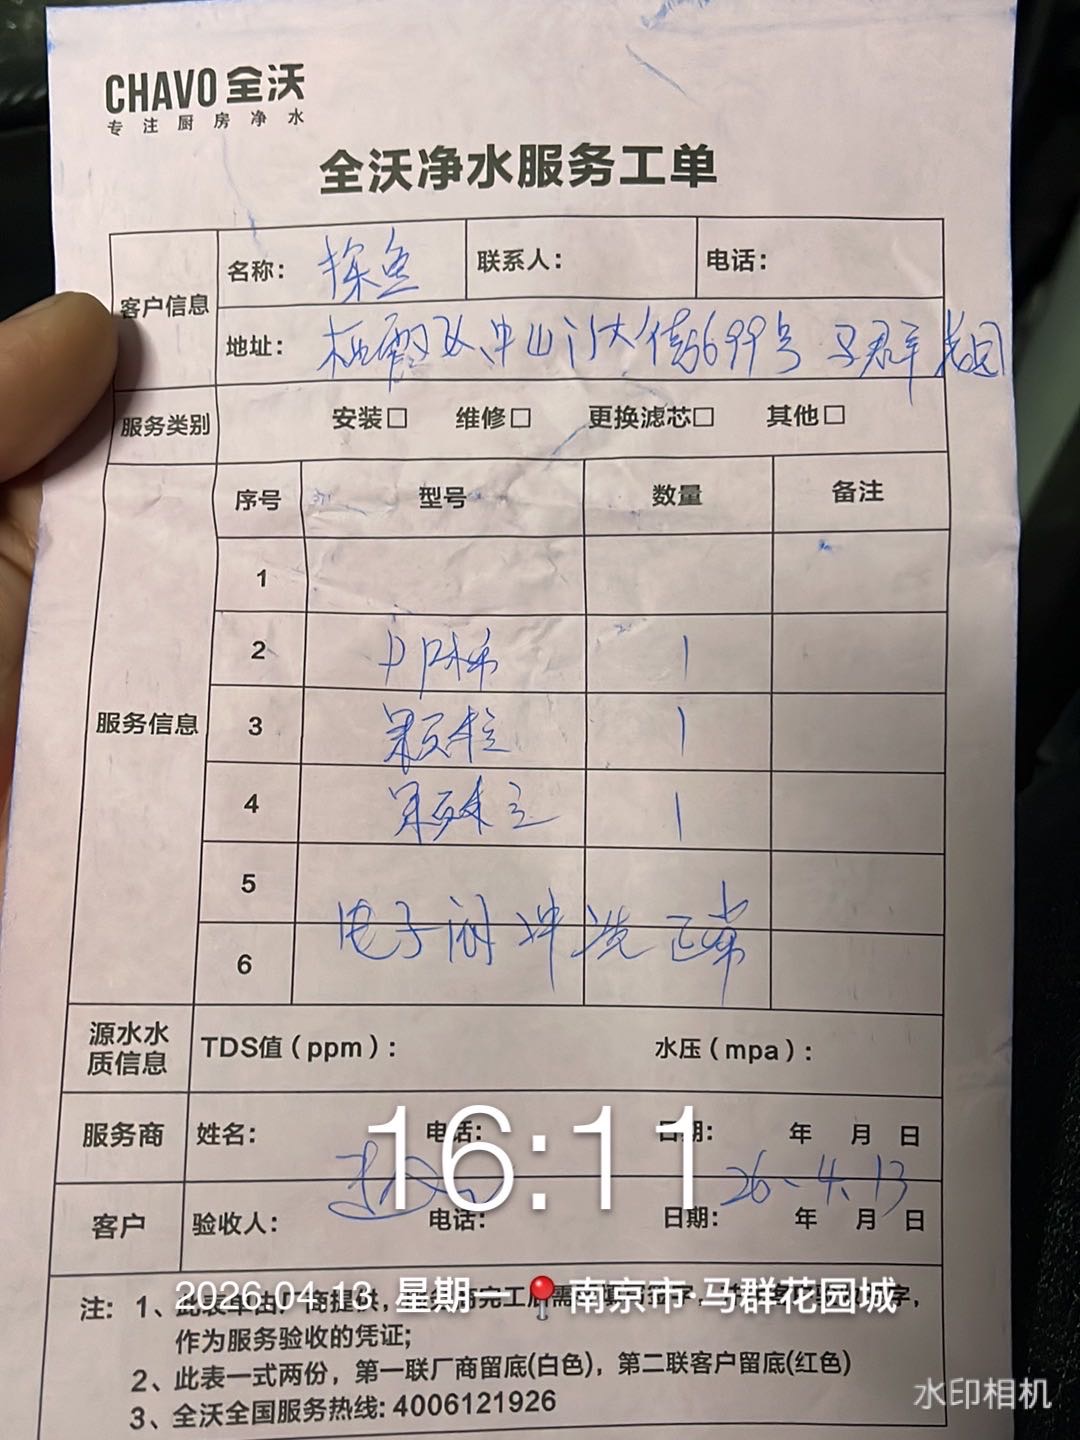 CHAVO 全沃
专注厨房净水
全沃净水服务工单
客户信息
名称： 探鱼 联系人： 电话：
地址： 栖霞区中山门大街699号 马群花园
服务类别 安装□ 维修□ 更换滤芯□ 其他□
服务信息
序号 型号 数量 备注
1
2 PP棉 1
3 颗粒 1
4 颗粒 1
5
电子阀冲洗正常
6
源水水质信息 TDS值（ppm）： 水压（mpa）：
服务商 姓名： 电话： 日期： 年 月 日
16:11
26.4.13
客户 验收人： 电话： 日期： 年 月 日
2026.04.13 星期一 南京市·马群花园城
注： 1、此表单由厂商提供，
作为服务验收的凭证；
2、此表一式两份，第一联厂商留底(白色)，第二联客户留底(红色)
3、全沃全国服务热线: 4006121926
水印相机